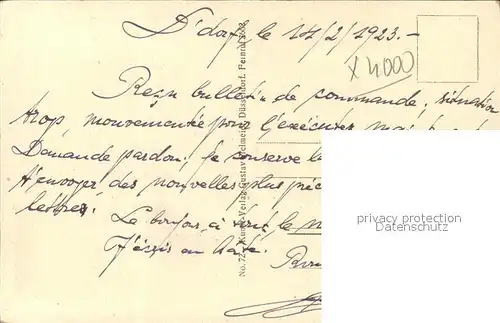 D'dorf le 14/2/1923.-
X 4000
Reçu bulletin de commande, situation
trop mouvementée pour l'exécuter, mai
Demande pardon, je conserve le
t'envoyer des nouvelles plus
lettres.
Le bonjour à tout le
J'écris en
No. 72 Kunst-Verlag Gustav Düsseldorf.
privacy protection
oldthing.de